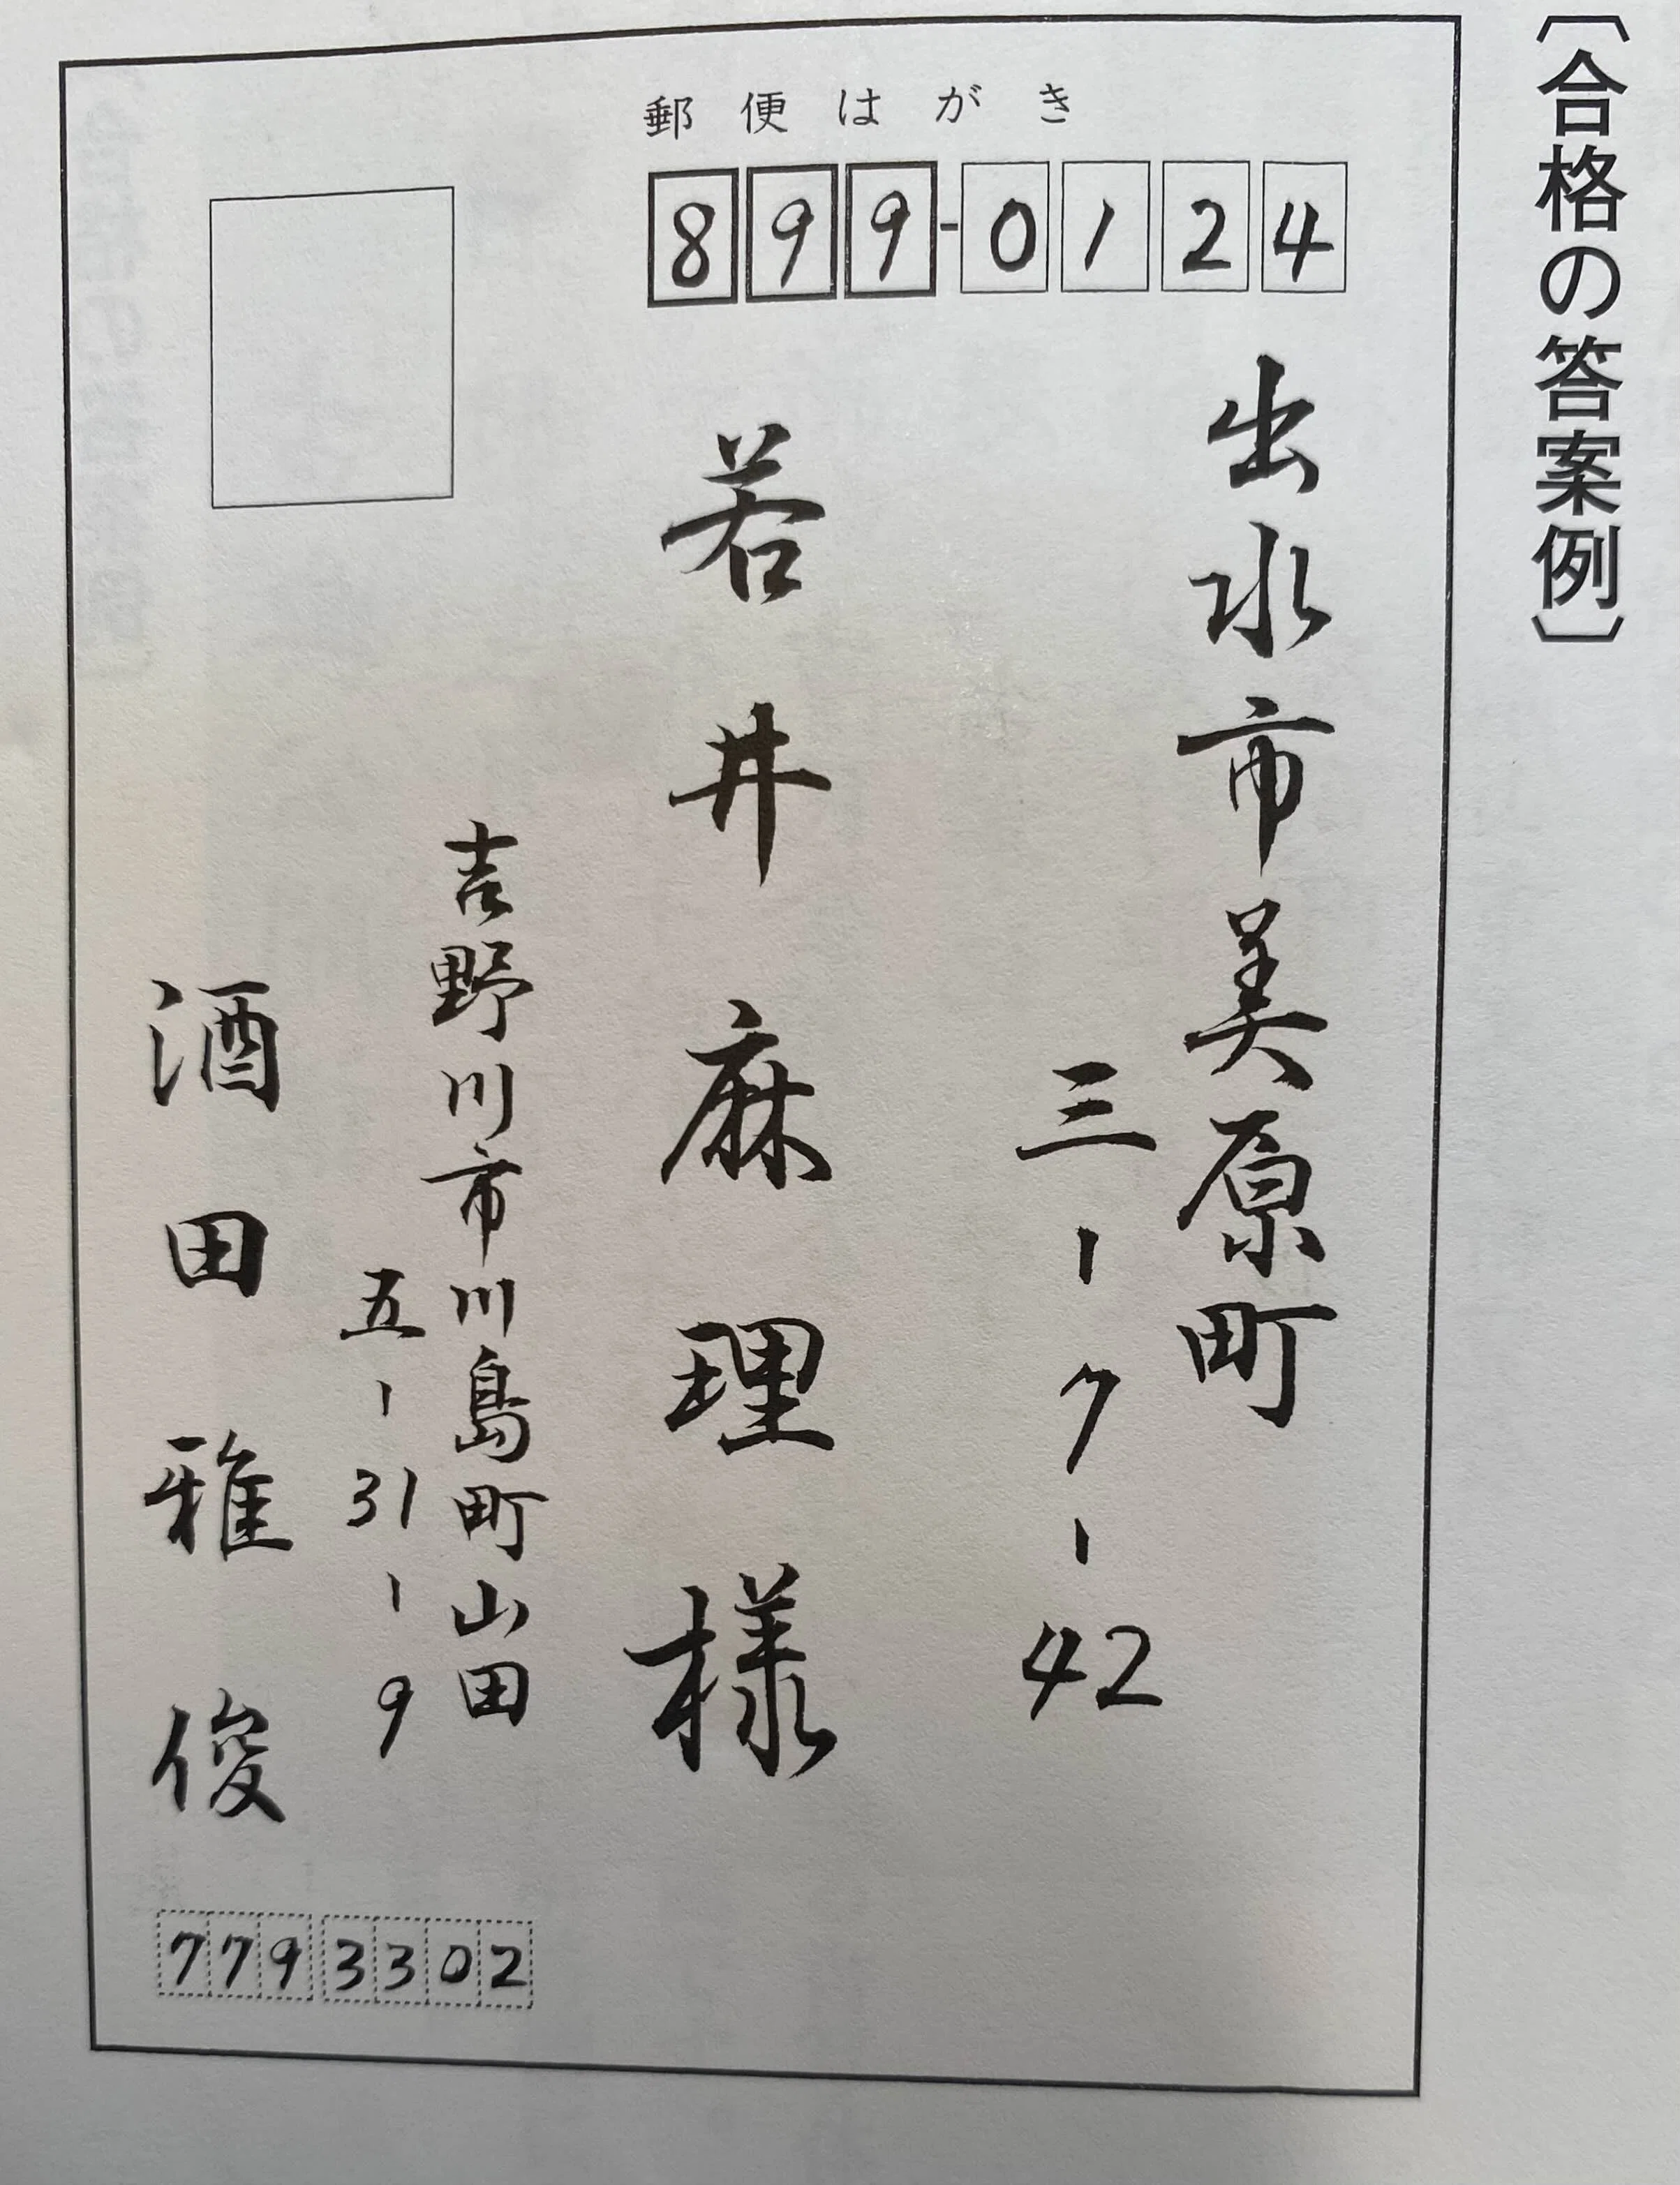 〔合格の答案例〕
郵便はがき
899-0124
出水市美原町
三-7-42
若井麻理様
吉野川市川島町山田
五-31-9
酒田雅俊
7793302